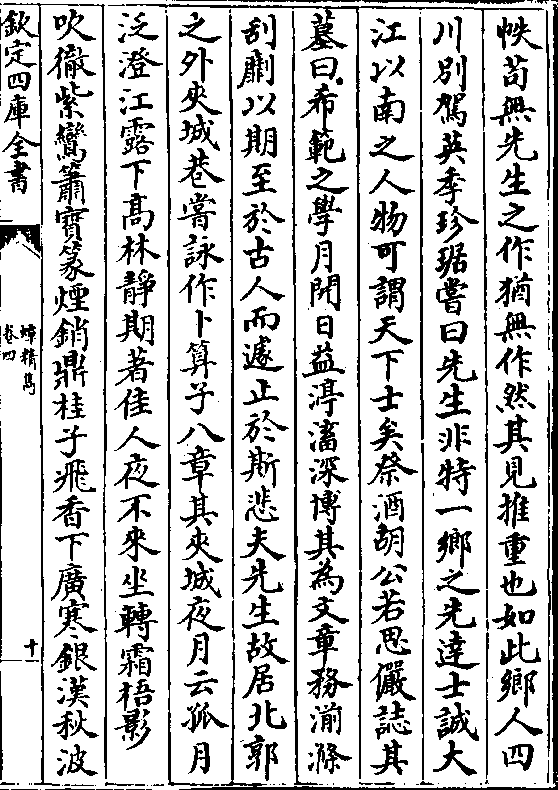 帙苟無先生之作猶無作然其見推重也如此鄉人四
川別駕英季珍琚嘗曰先生非特一鄉之先達士誠大
江以南之人物可謂天下士矣祭酒胡公若思儼誌其
墓曰希範之學月開日益渟滀深博其為文章務湔滌
刮劘以期至於古人而遽止於斯悲夫先生故居北郭
之外夾城巷嘗詠作卜算子八章其夾城夜月云孤月
泛澄江露下髙林靜期著佳人夜不來坐轉霜梧影
吹徹紫鸞簫寳篆煙銷鼎桂子飛香下廣寒銀漢秋波
欽定四庫全書
蟫精雋
卷四
十